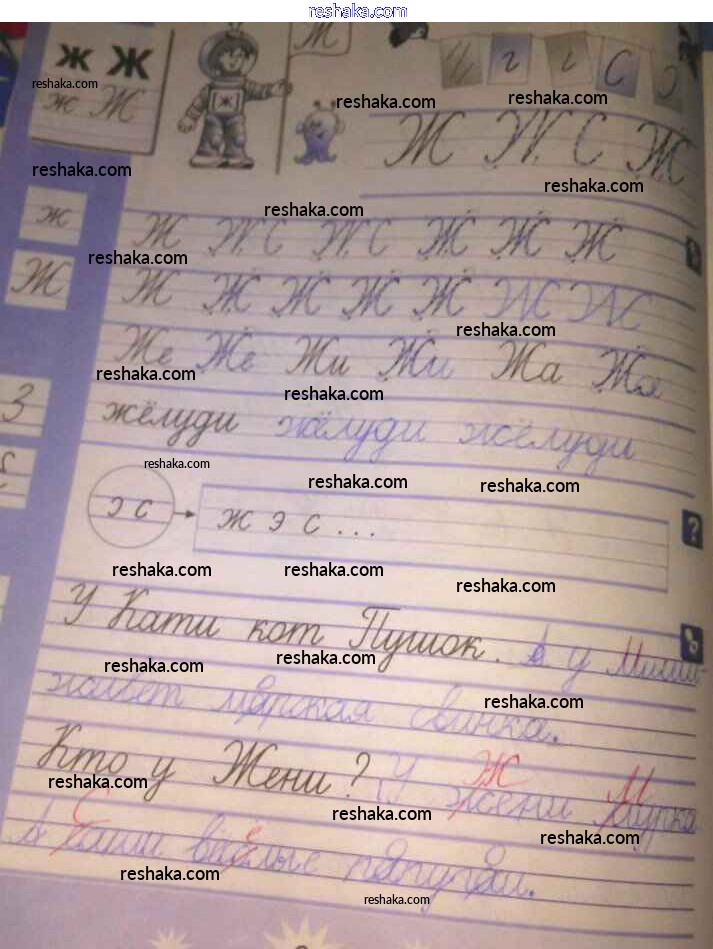 reshaka.com
ж Ж
ж Ж
Ж
г С
Ж Ж С Ж
ж
Ж Ж С Ж С Ж Ж Ж
Ж
Ж Ж Ж Ж Ж Ж Ж
Же Же Жи Жи Жа Жа
З
жёлуди жёлуди жёлуди
э с
ж э с ...
?
У Кати кот Пушок. А у Миши
живёт морская свинка.
Кто у Жени? У жени
А весёлые попугаи.